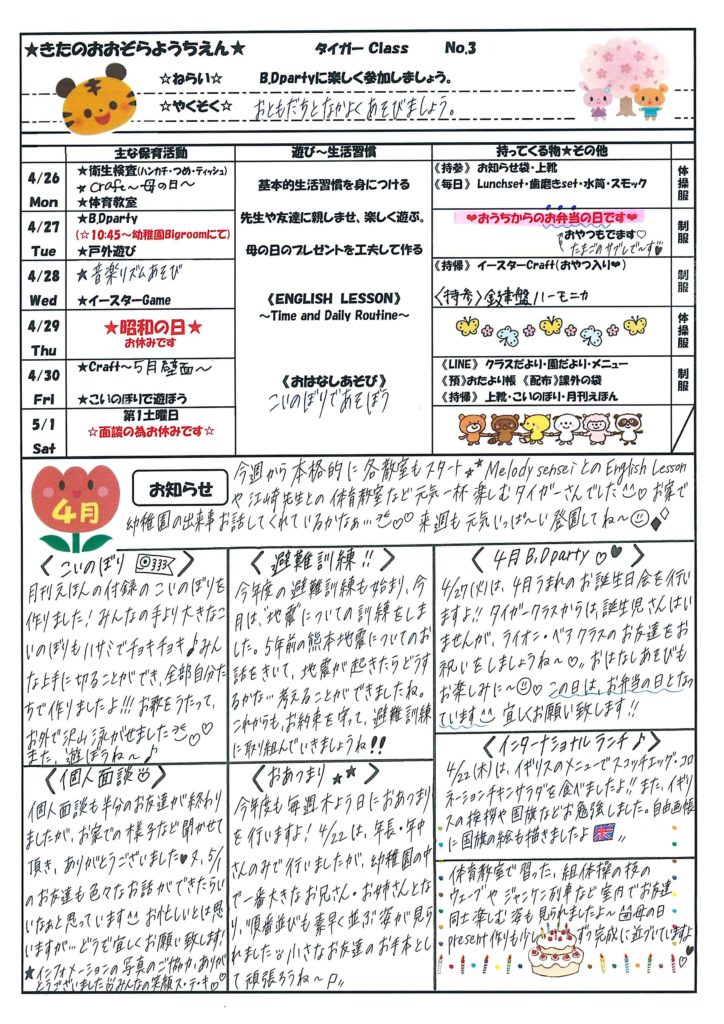 ★きたのおおぞらようちえん★ タイガー Class No.3
☆ねらい☆ B,Dpartyに楽しく参加しましょう。
☆やくそく☆ おともだちとなかよくあそびましょう。
主な保育活動 遊び～生活習慣 持ってくる物★その他
4/26
Mon
★衛生検査(ハンカチ・つめ・ティッシュ)
★Craft～母の日～
★体育教室
4/27
Tue
★B,Dparty
(☆10:45～幼稚園Bigroomにて)
★戸外遊び
4/28
Wed
★音楽リズムあそび
★イースターGame
4/29
Thu
★昭和の日★
お休みです
4/30
Fri
★Craft～5月壁面～
★こいのぼりで遊ぼう
5/1
Sat
第1土曜日
☆面談の為お休みです☆
基本的生活習慣を身につける
先生や友達に親しませ、楽しく遊ぶ。
母の日のプレゼントを工夫して作る
《ENGLISH LESSON》
～Time and Daily Routine～
《おはなしあそび》
こいのぼりであそぼう
《持参》 お知らせ袋・上靴
《毎日》 Lunchset・歯磨きset・水筒・スモック
体操服
❤おうちからのお弁当の日です❤
おやつもでます♡
たまごのサブレで～す♡
制服
《持帰》 イースターCraft(おやつ入り❤)
〈持参〉 鍵盤ハーモニカ
制服
体操服
《LINE》 クラスだより・園だより・メニュー
《預》おたより帳 《配布》課外の袋
《持帰》 上靴・こいのぼり・月刊えほん
制服
4月
お知らせ
今週から本格的に各教室もスタート★★Melody senseiとのEnglish Lesson
や江崎先生との体育教室など元気一杯楽しむタイガーさんでした♡お家で
幼稚園の出来事お話してくれているかなぁ…♡♡来週も元気いっぱ～い登園してね～
〈こいのぼり〉
月刊えほんの付録のこいのぼりを
作りました!みんなの手より大きなこ
いのぼりもハサミでチョキチョキ♪みん
な上手に切ることができ、全部自分た
ちで作りましたよ!!!お歌をうたって、
お外で沢山泳がせました♡♡
また、遊ぼうね～♪
〈避難訓練!!〉
今年度の避難訓練も始まり、今
月は、"地震"についての訓練をしま
した。5年前の熊本地震についてのお
話をきいて、地震が起きたらどうす
るかな…考えることができましたね。
これからも、お約束を守って、避難訓練
に取り組んでいきましょうね!!
〈4月B,Dparty♡♥〉
4/27(火)は、4月うまれのお誕生日会を行い
ますよ!!タイガークラスからは、誕生児さんはい
ませんが、ライオン・ベアクラスのお友達をお
祝いをしましょうね～♡。おはなしあそびも
お楽しみに～♡この日は、お弁当の日となっ
ています 宜しくお願い致します!!
〈インターナショナルランチ♪〉
4/22(木)は、イギリスのメニューでスコッチエッグ・コロ
ネーションチキンサラダを食べましたよ!!また、イギリ
スの挨拶や国旗などお勉強しました。自由画帳
に国旗の絵も描きましたよ
〈個人面談〉
個人面談も半分のお友達が終わり
ましたが、お家での様子など聞かせて
頂き、ありがとうございました♥又、5/1
のお友達も色々なお話ができたらい
いなぁと思っています お忙しいとは思
いますが…どうぞ宜しくお願い致します!
★インフォメーションの写真のご協力、ありが
とうございました みんなの笑顔ス・テ・キ♡
〈おあつまり★★〉
今年度も毎週木よう日におあつまり
を行いますよ!4/22は、年長・年中
さんのみで行いましたが、幼稚園の中
で一番大きなお兄さん・お姉さんとな
り、順番並びも素早く並ぶ姿が見ら
れました 小さなお友達のお手本とし
て頑張ろうね～♪。
体育教室で習った、組体操の技の
ウェーブやジャンケン列車など室内でお友達
同士楽しむ姿も見られましたよ～母の日
present作りも少しずつ完成に近づいていますよ